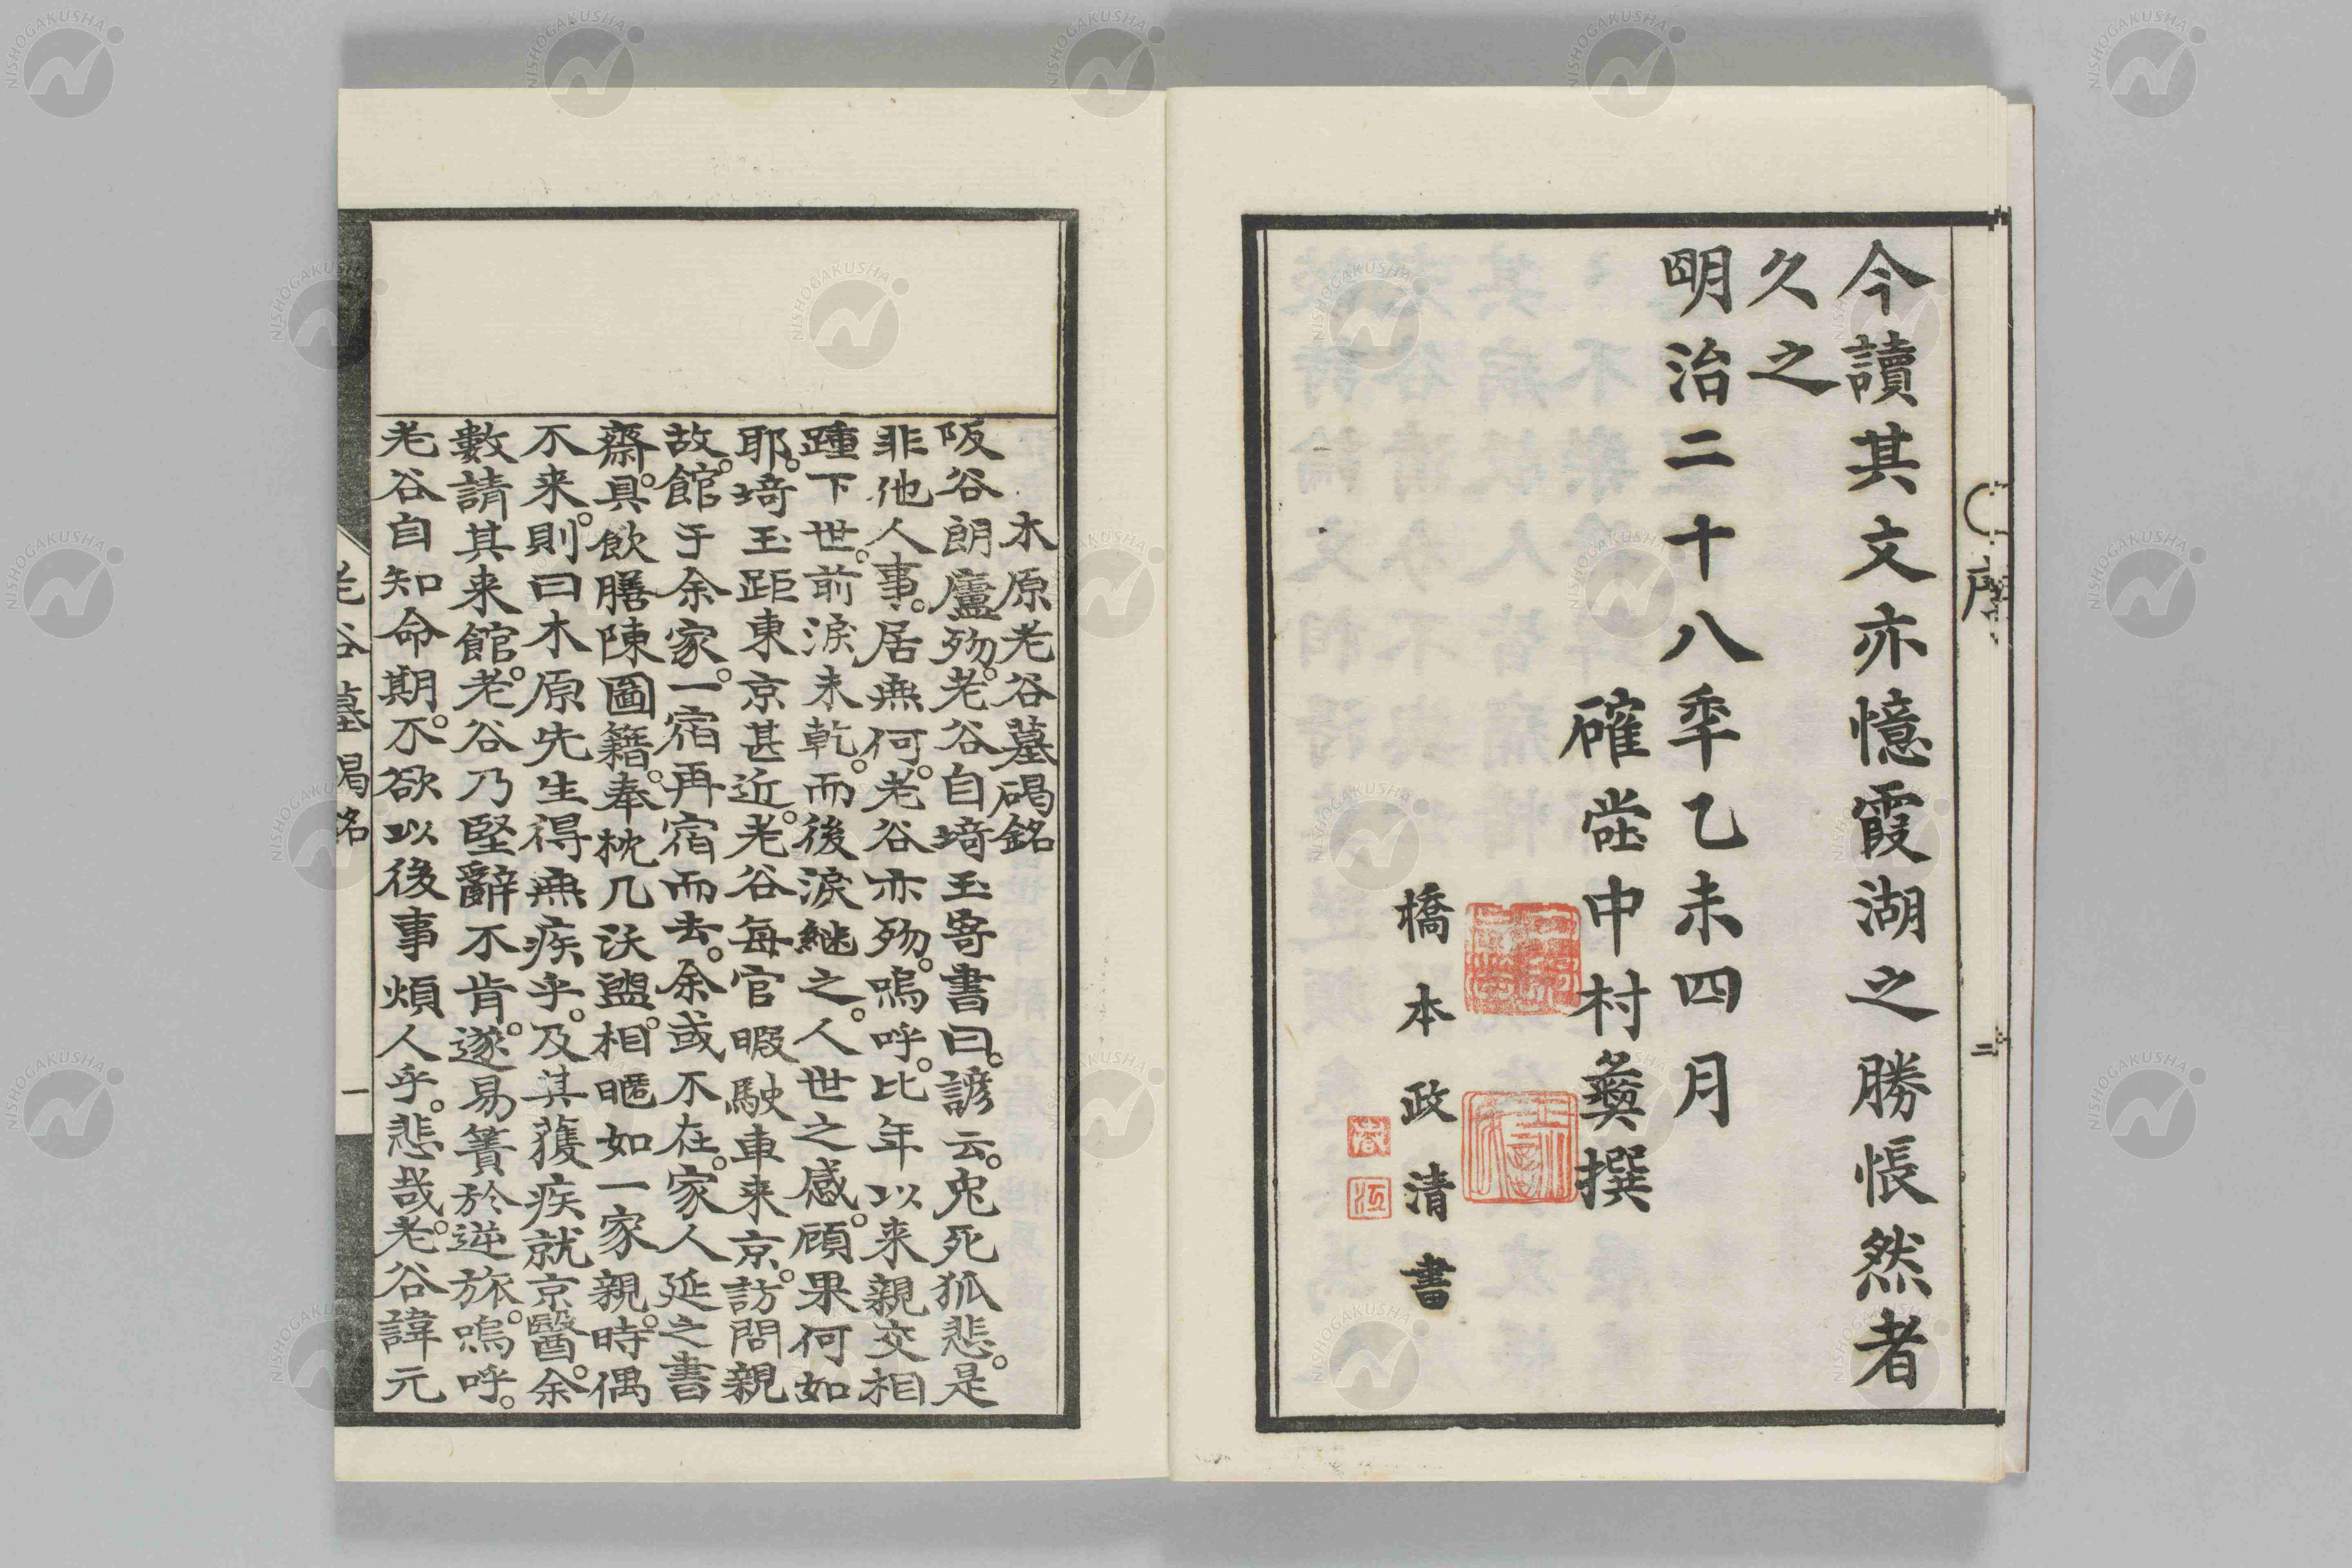 今讀其文亦憶霞湖之勝悵然者
久之
明治二十八季乙未四月
確堂中村彝撰
橋本政清書
序
二
木原老谷墓碣銘
阪谷朗廬歿。老谷自埼玉寄書曰。諺云。兎死狐悲。是
非他人事。居無何。老谷亦歿。嗚呼。比年以来親交相
踵下世。前淚未乾。而後淚継之。人世之感。顧果何如
耶。埼玉距東京甚近。老谷毎官暇駛車来京。訪問親
故。館于余家。一宿再宿而去。余或不在。家人延之書
齋。具飲膳陳圖籍。奉枕几沃盥。相暱如一家親。時偶
不来。則曰木原先生得無疾乎。及其獲疾就京醫。余
數請其来館。老谷乃堅辭不肯。遂易簀於逆旅。嗚呼。
老谷自知命期。不欲以後事煩人乎。悲哉。老谷諱元
老谷墓碣銘
一
NISHOGAKUSHA